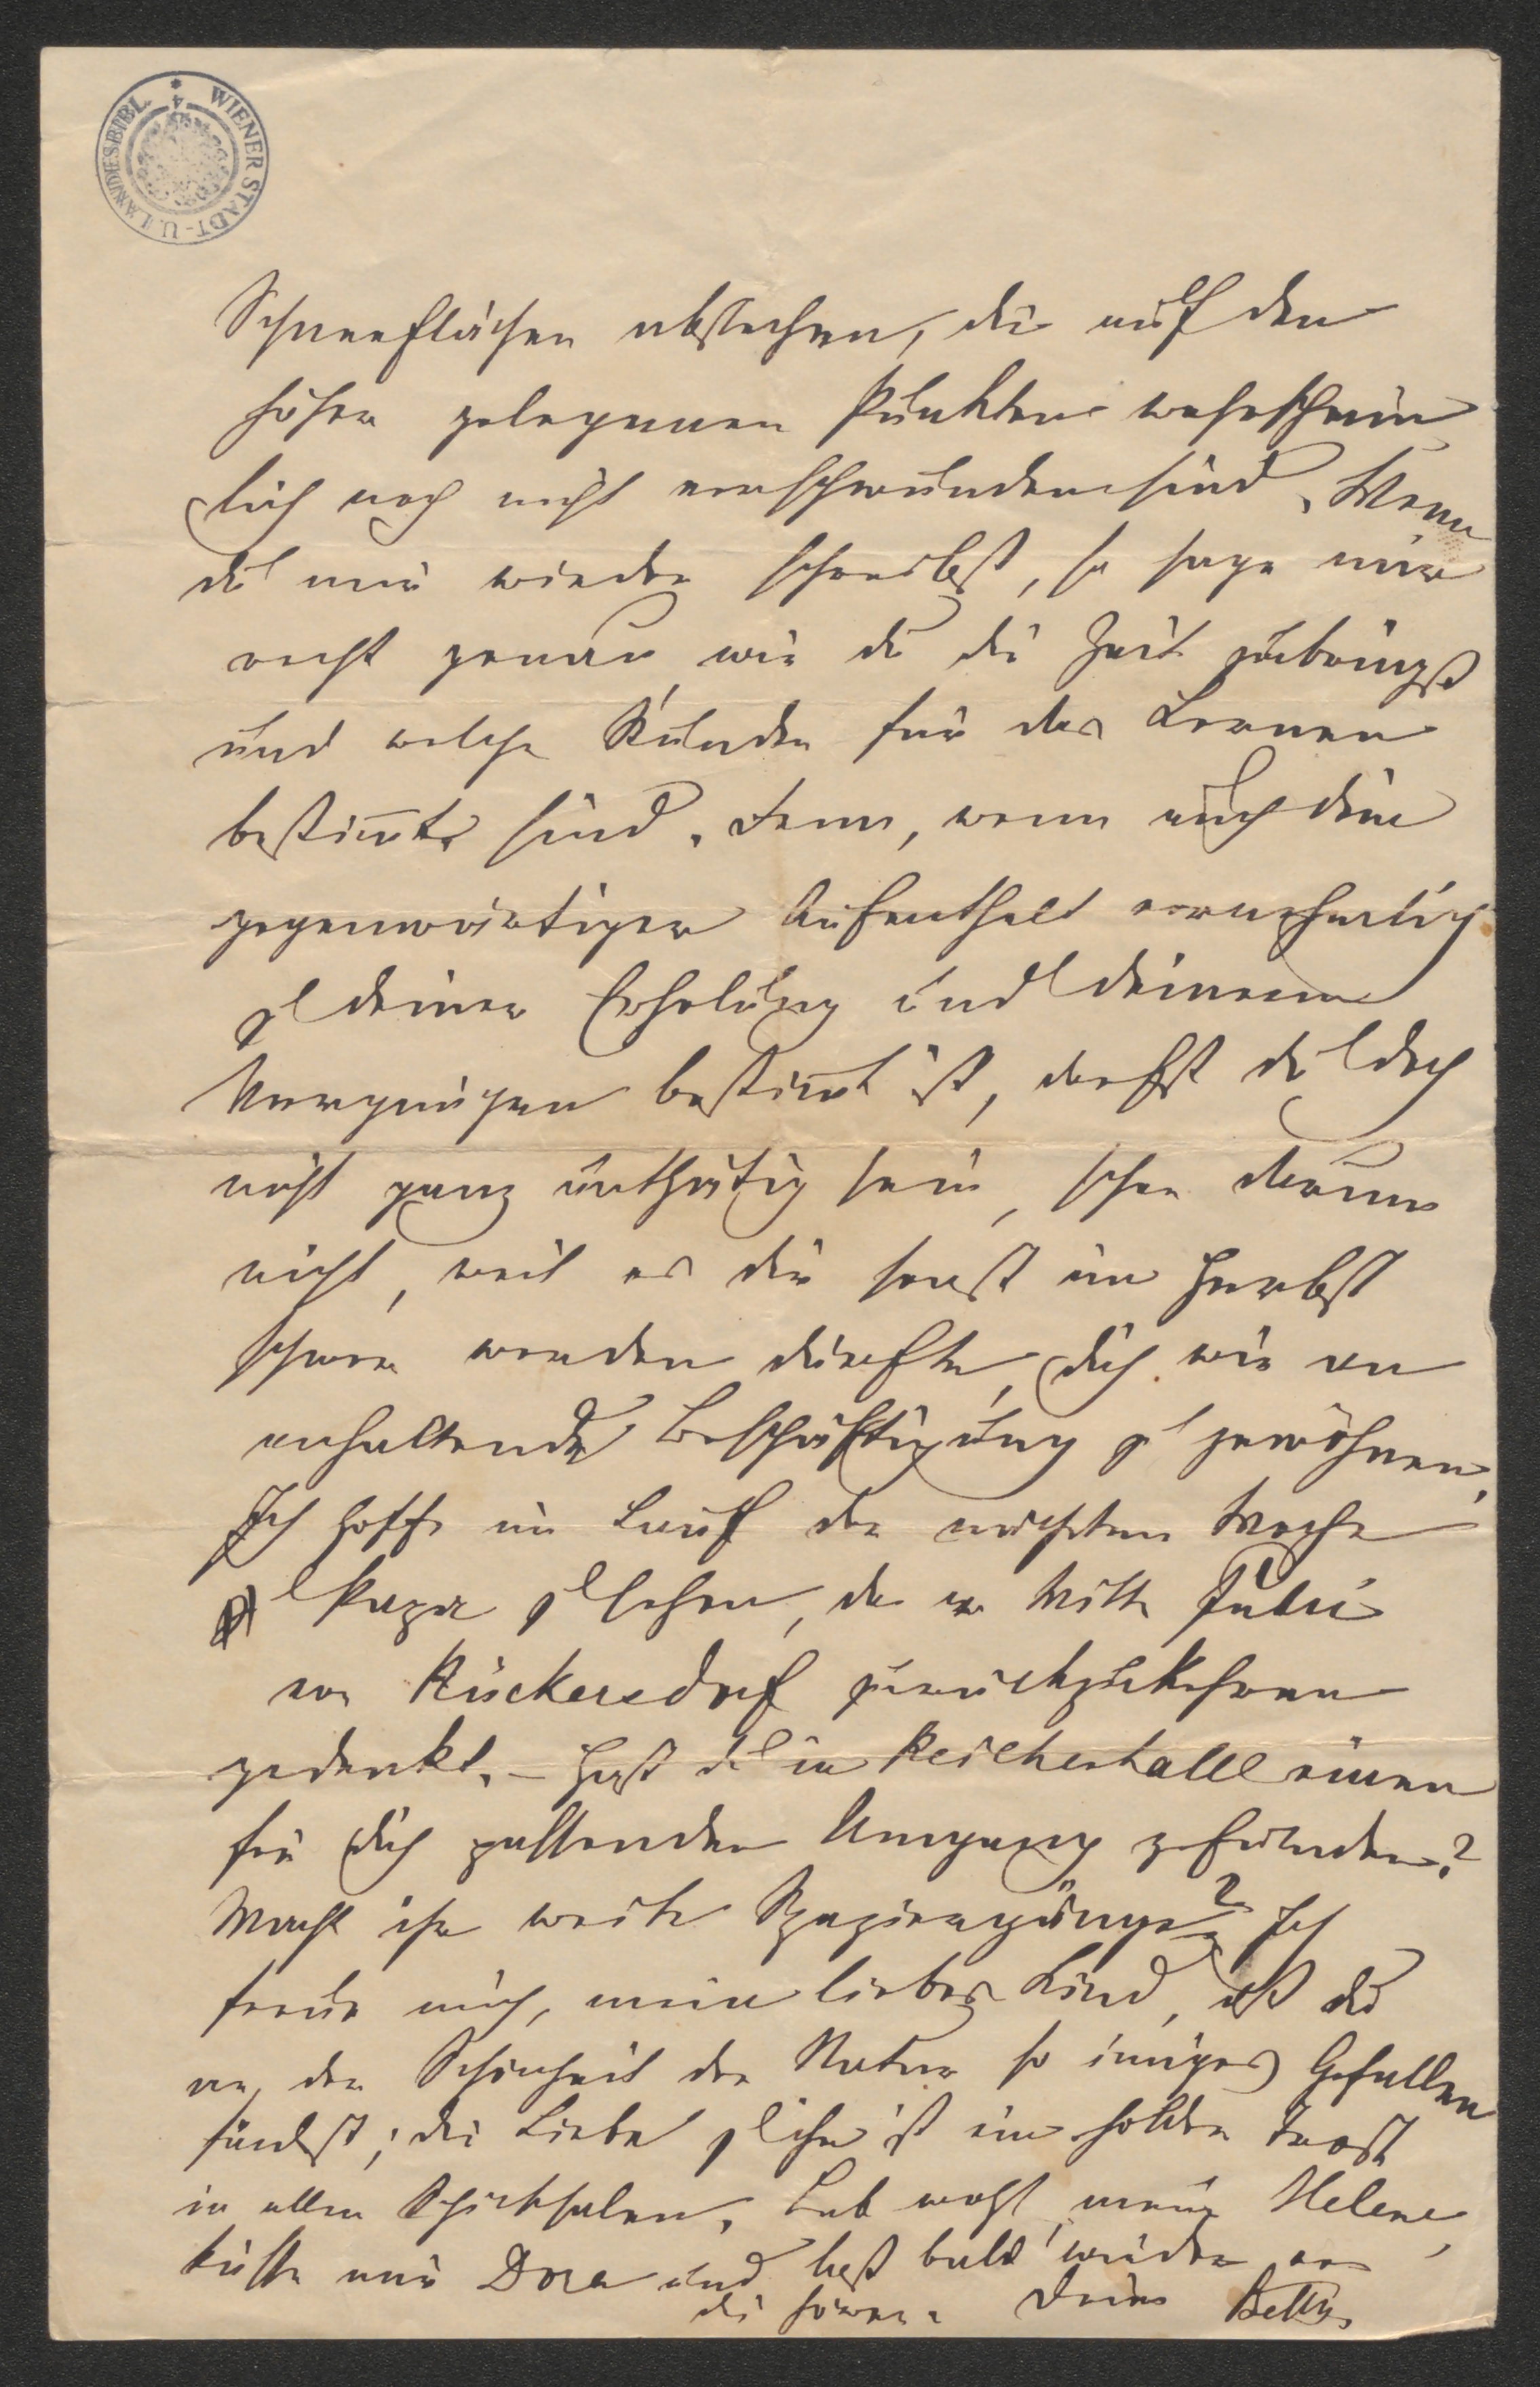 WIENER STADT-U. LANDESBIBL.
Schneeflächen abstechen, die auf den
höher gelegenen Punkten wahrschein
lich noch nicht verschwunden sind. Wenn
du mir wieder schreibst, so sage mir
recht genau, wie du die Zeit zubringst
und welche Stunden für das Lernen
bestim̅t sind. Denn, wenn auch dein
gegenwärtiger Aufenthalt vornehmlich
zu deiner Erholung und deinem
Vergnügen bestim̅t ist, darfst du doch
nicht ganz unthätig sein, schon darum
nicht, weil es dir sonst im Herbst
schwer werden dürfte, dich wie an
anhaltende Beschäftigung zu gewöhnen.
Ich hoffe im Lauf der nächsten Woche
Papa zu sehen, da er Mitte Juli
von Rückersdorf zurückzukehren
gedenkt. – Hast du in Reichenhall einen
für dich passenden Umgang gefunden?
Macht ihr weite Spaziergänge? Ich
freue mich, mein liebes Kind, daß du
an der Schönheit der Natur so inniges Gefallen
findest; die Liebe zu ihr ist ein holder Trost
in allen Schicksalen. Leb wohl, meine Helene,
küsse mir Dora und laß bald wieder von
dir hören. Deine Betty.